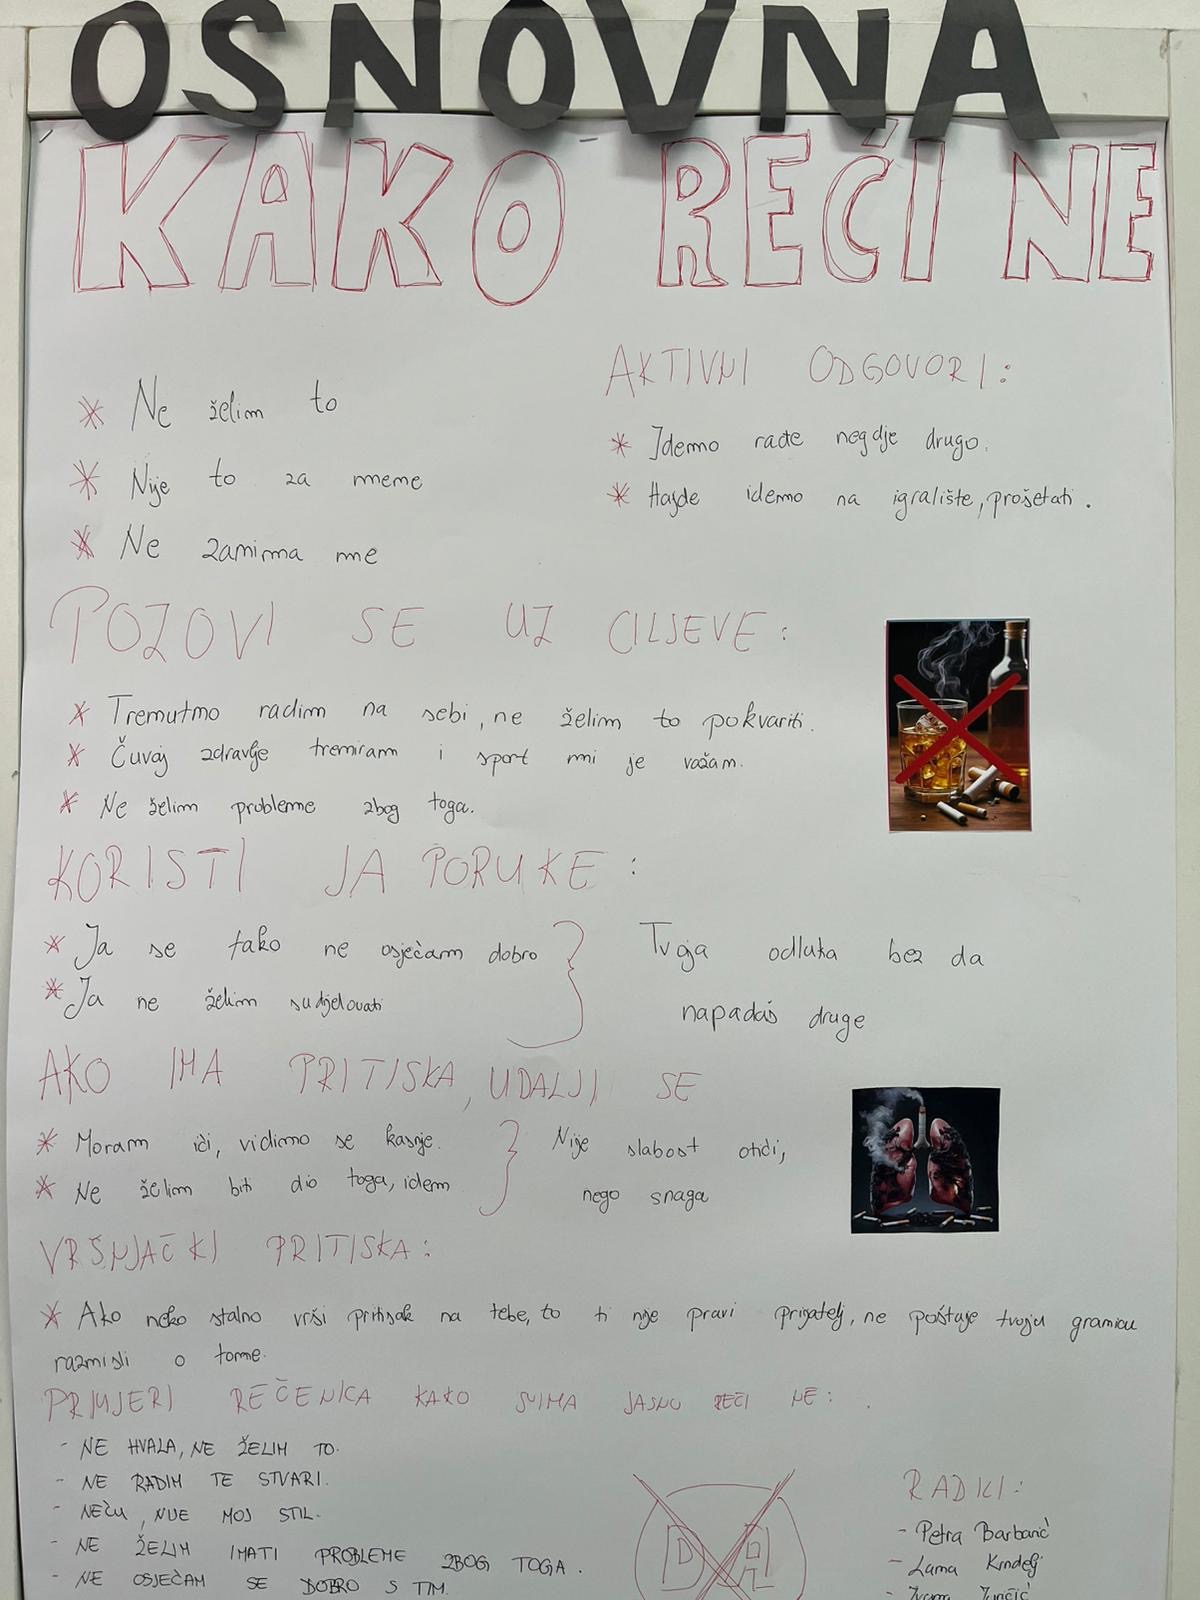 OSNOVNA
KAKO REĆI NE
* Ne želim to
* Nije to za mene
* Ne zanima me
AKTIVNI ODGOVORI:
* Idemo rađe negdje drugo.
* Hajde idemo na igralište, prošetati.
POZOVI SE UZ CILJEVE:
* Trenutno radim na sebi, ne želim to pokvariti.
* Čuvaj zdravlje treniram i sport mi je važam.
* Ne želim probleme zbog toga.
KORISTI JA PORUKE:
* Ja se tako ne osječam dobro
* Ja ne želim sudjelovati
Tvoja odluka bez da
napadaš druge
AKO IMA PRITISKA, UDALJI SE
* Moram ići, vidimo se kasnije.
* Ne želim biti dio toga, idem
Nije slabost otići,
nego snaga
VRŠNJAČKI PRITISKA:
* Ako neko stalno vrši pritisak na tebe, to ti nije pravi prijatelj, ne poštuje tvoju granicu
razmisli o tome.
PRIMJERI REČENICA KAKO SVIMA JASNO REĆI NE:
- NE HVALA, NE ŽELIM TO.
- NE RADIM TE STVARI.
- NEĆU, NIJE MOJ STIL.
- NE ŽELIM IMATI PROBLEME ZBOG TOGA.
- NE OSJEČAM SE DOBRO S TIM.
DA
RADILI:
- Petra Barbarić
- Lana
- Ivana